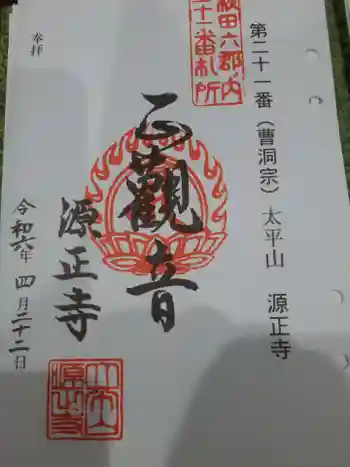 秋田六郡内
三十一番札所
第二十一番（曹洞宗）太平山　源正寺
奉拝
正觀音
源正寺
令和六年四月二十二日